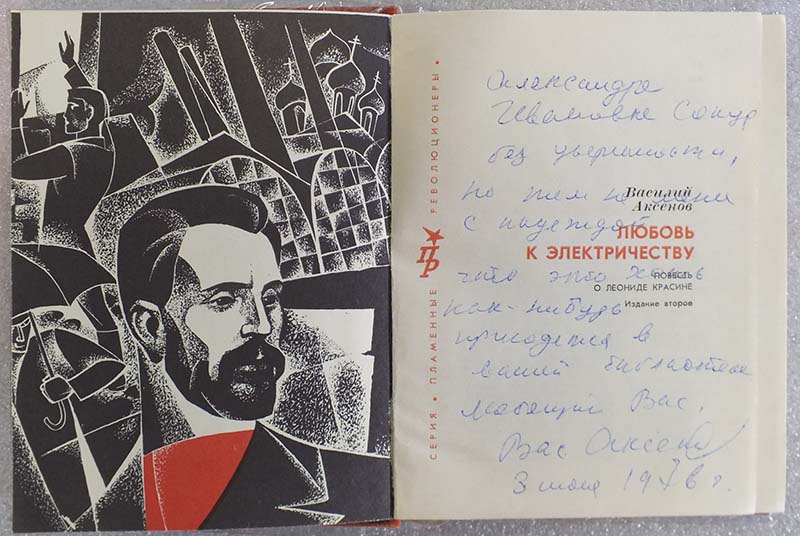 СЕРИЯ • ПЛАМЕННЫЕ РЕВОЛЮЦИОНЕРЫ •
ПР
Василий
Аксенов
ЛЮБОВЬ
К ЭЛЕКТРИЧЕСТВУ
ПОВЕСТЬ
О ЛЕОНИДЕ КРАСИНЕ
Издание второе
Александре
Ивановне
без уверенности,
но тем не менее
с надеждой
что это
как-нибудь
в
вашей библиотеке
Любящий Вас,
Вас Аксенов
3 197 г.